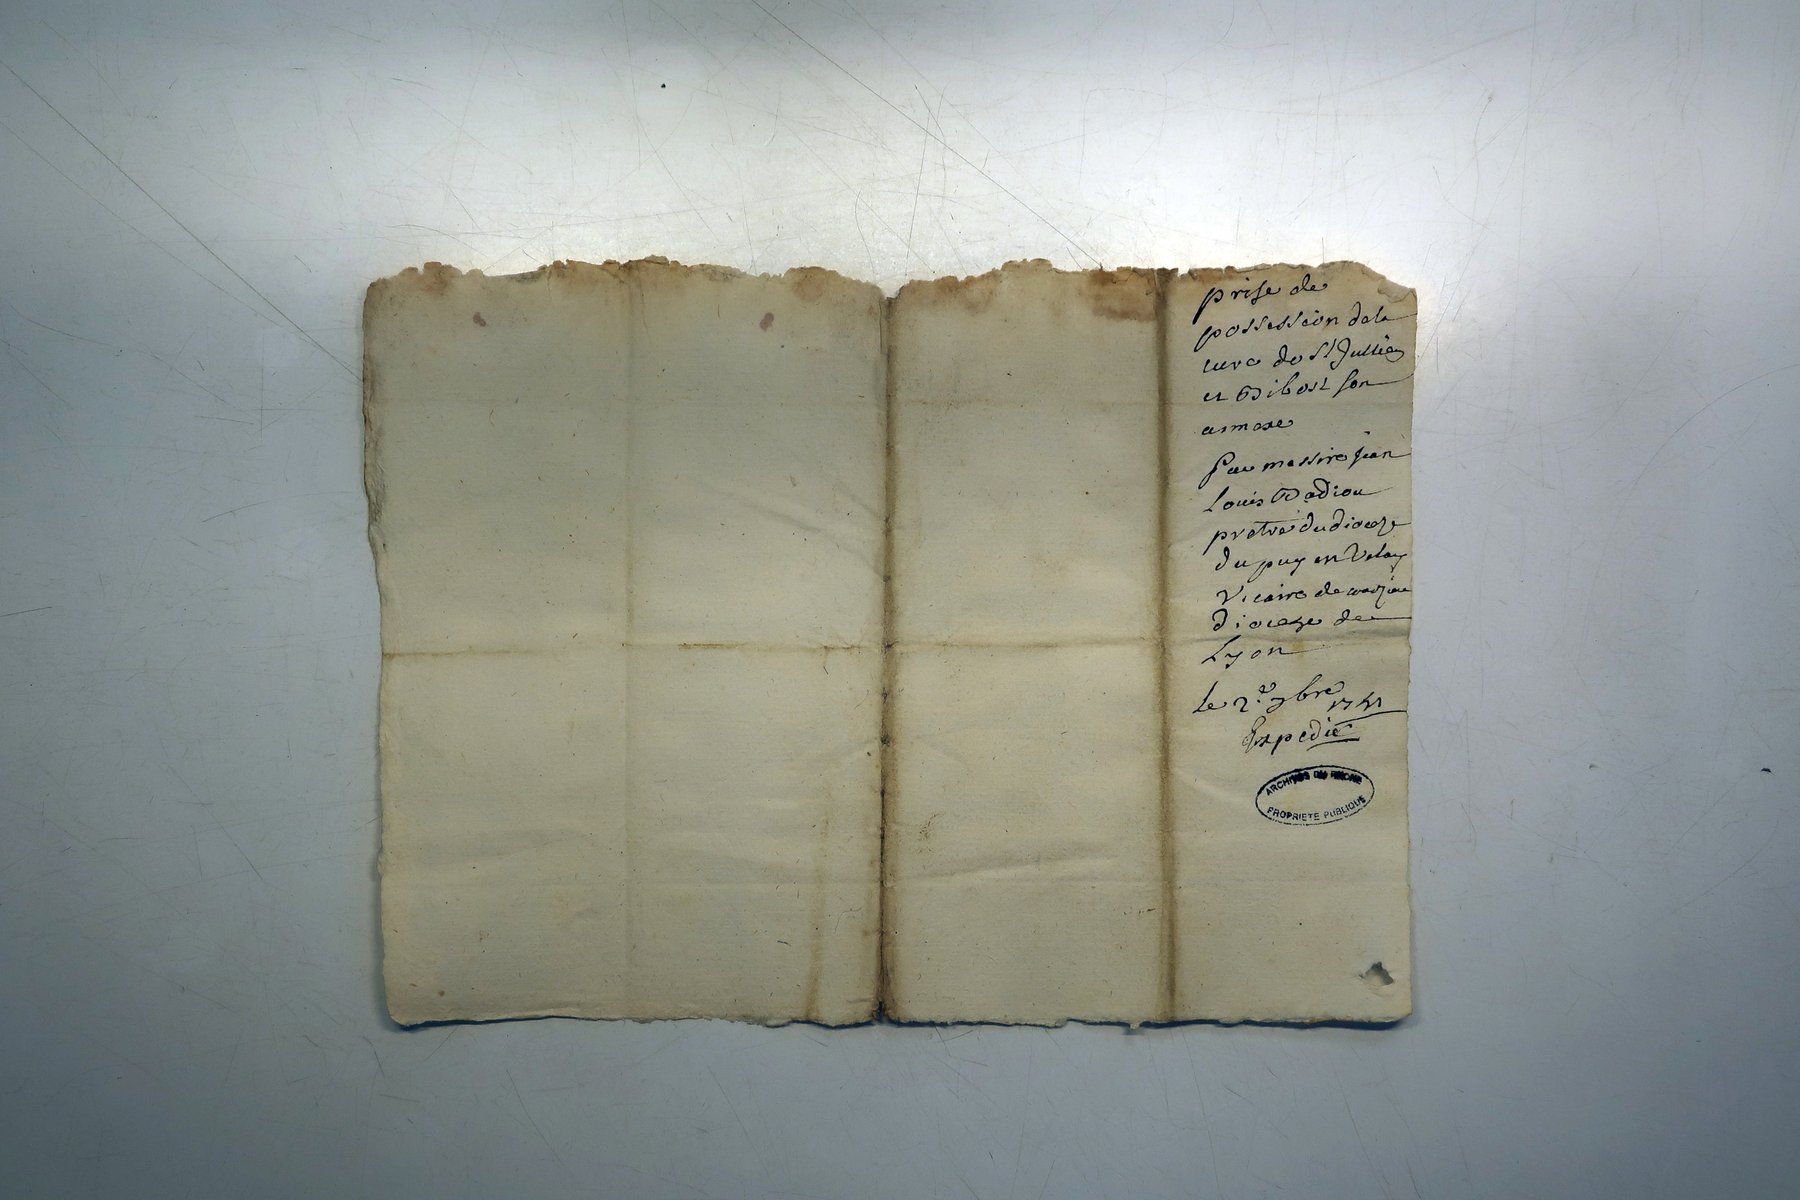 prise de
possession dela
cure de St Jullien
et Bibost son
annexe
Par messire jean
Louis Badiou
pretre du dioceze
du puy en Velay
Vicaire de
dioceze de
Lyon
le 2e 9bre 1741
Expedié
ARCHIVES DU RHONE
PROPRIETE PUBLIQUE